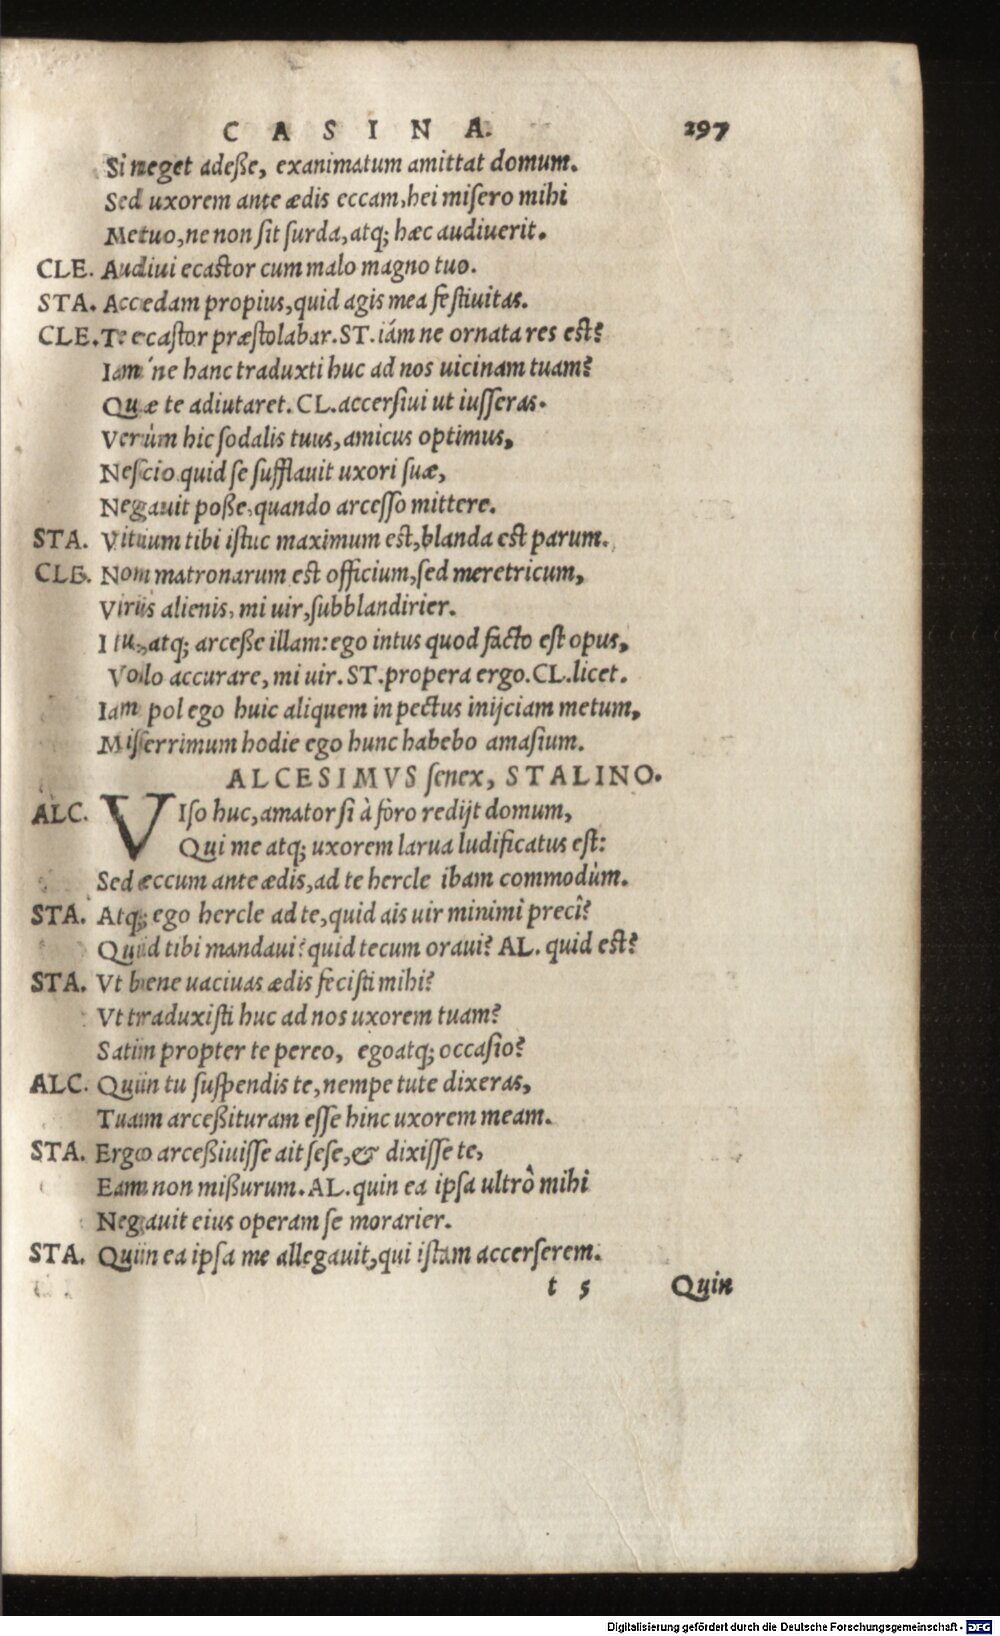 CASINA. 297
Si neget adeße, exanimatum amittat domum.
Sed uxorem ante ædis eccam, hei misero mihi
Metuo, ne non sit surda, atq; hæc audiuerit.
CLE. Audiui ecastor cum malo magno tuo.
STA. Accedam propius, quid agis mea festiuitas.
CLE. Te ecastor præstolabar. ST. iám ne ornata res est?
Iam´ne hanc traduxti huc ad nos uicinam tuam?
Quæ te adiutaret. CL. accersiui ut iusseras.
Verùm hic sodalis tuus, amicus optimus,
Nescio quid se sufflauit uxori suæ,
Negauit poße, quando arcesso mittere.
STA. Vitium tibi istuc maximum est, blanda est parum.
CLE. Non matronarum est officium, sed meretricum,
Viris alienis, mi uir, subblandirier.
I tu, atq; arceße illam: ego intus quod facto est opus,
Volo accurare, mi uir. ST. propera ergo. CL. licet.
Iam pol ego huic aliquem in pectus inijciam metum,
Miserrimum hodie ego hunc habebo amasium.
ALCESIMVS senex, STALINO.
ALC. VIso huc, amator si à foro redijt domum,
Qui me atq; uxorem larua ludificatus est:
Sed eccum ante ædis, ad te hercle ibam commodùm.
STA. Atq; ego hercle ad te, quid ais uir minimi preci?
Quid tibi mandaui? quid tecum oraui? AL. quid est?
STA. Vt bene uaciuas ædis fecisti mihi?
Vt traduxisti huc ad nos uxorem tuam?
Satin propter te pereo, ego atq; occasio?
ALC. Quin tu suspendis te, nempe tute dixeras,
Tuam arceßituram esse hinc uxorem meam.
STA. Ergo arceßiuisse ait sese, & dixisse te,
Eam non mißurum. AL. quin ea ipsa ultrò mihi
Negauit eius operam se morarier.
STA. Quin ea ipsa me allegauit, qui istam accerserem.
t 5 Quin
Digitalisierung gefördert durch die Deutsche Forschungsgemeinschaft - DFG